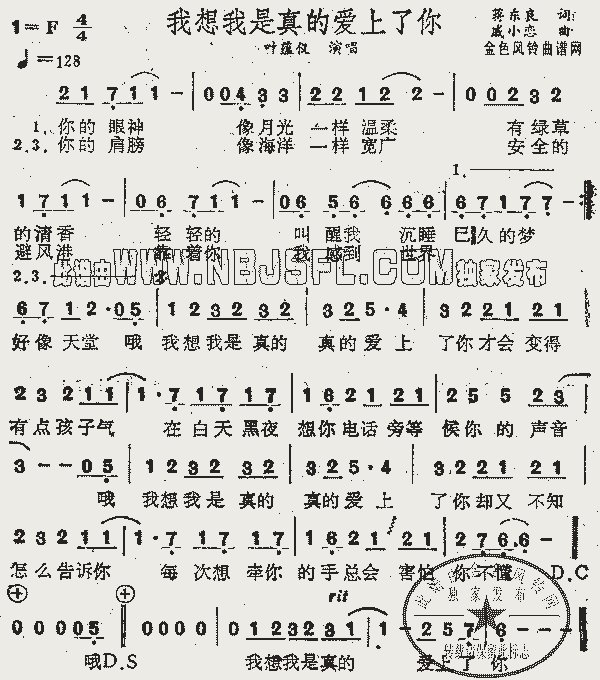 1=F 4/4 我想我是真的爱上了你 蒋东良 词
♩=128 叶蕴仪 演唱 戚小恋 曲
金色风铃曲谱网
2 1 7 1 1 - | 0 0 4 3 3 | 2 2 1 2 2 - | 0 0 2 3 2
1.你的 眼神 像月光 一样 温柔 有绿草
2.3.你的 肩膀 像海洋 一样 宽广 安全的
1.
1 7 1 1 - | 0 6 7 1 1 - | 0 6 5 6 6 6 6 | 6 7 1 7 1 7 -
的清香 轻轻的 叫 醒我 沉睡 已久的梦
避风港 靠着你 我 感到 世界
2.3. 此谱由WWW.NBJSFL.COM独家发布
6 7 1 2 · 0 5 | 1 2 3 2 3 2 | 3 2 5 · 4 | 3 2 2 1 2 1
好像 天堂 哦 我想我是 真的 真的 爱 上 了你才会 变得
2 3 2 1 1 | 1 · 7 1 7 1 7 | 1 6 2 1 2 1 | 2 5 5 2 3
有点孩子气 在 白天 黑夜 想你电话 旁等 候你 的 声音
3 - - 0 5 | 1 2 3 2 3 2 | 3 2 5 · 4 | 3 2 2 1 2 1
哦 我想我是 真的 真的爱 上 了你却又 不知
2 3 2 1 1 | 1 · 7 1 7 0 7 | 1 6 2 1 2 1 | 2 7 6 6 -
怎么告诉你 每 次想 牵你 的手总会 害怕 你不懂 D.C
rit
0 0 0 0 0 5 | 0 0 0 0 | 0 1 2 3 2 3 1 | 1 - 2 5 7 | 6 - - -
哦D.S 我想我是真的 爱上了 你
独家发布